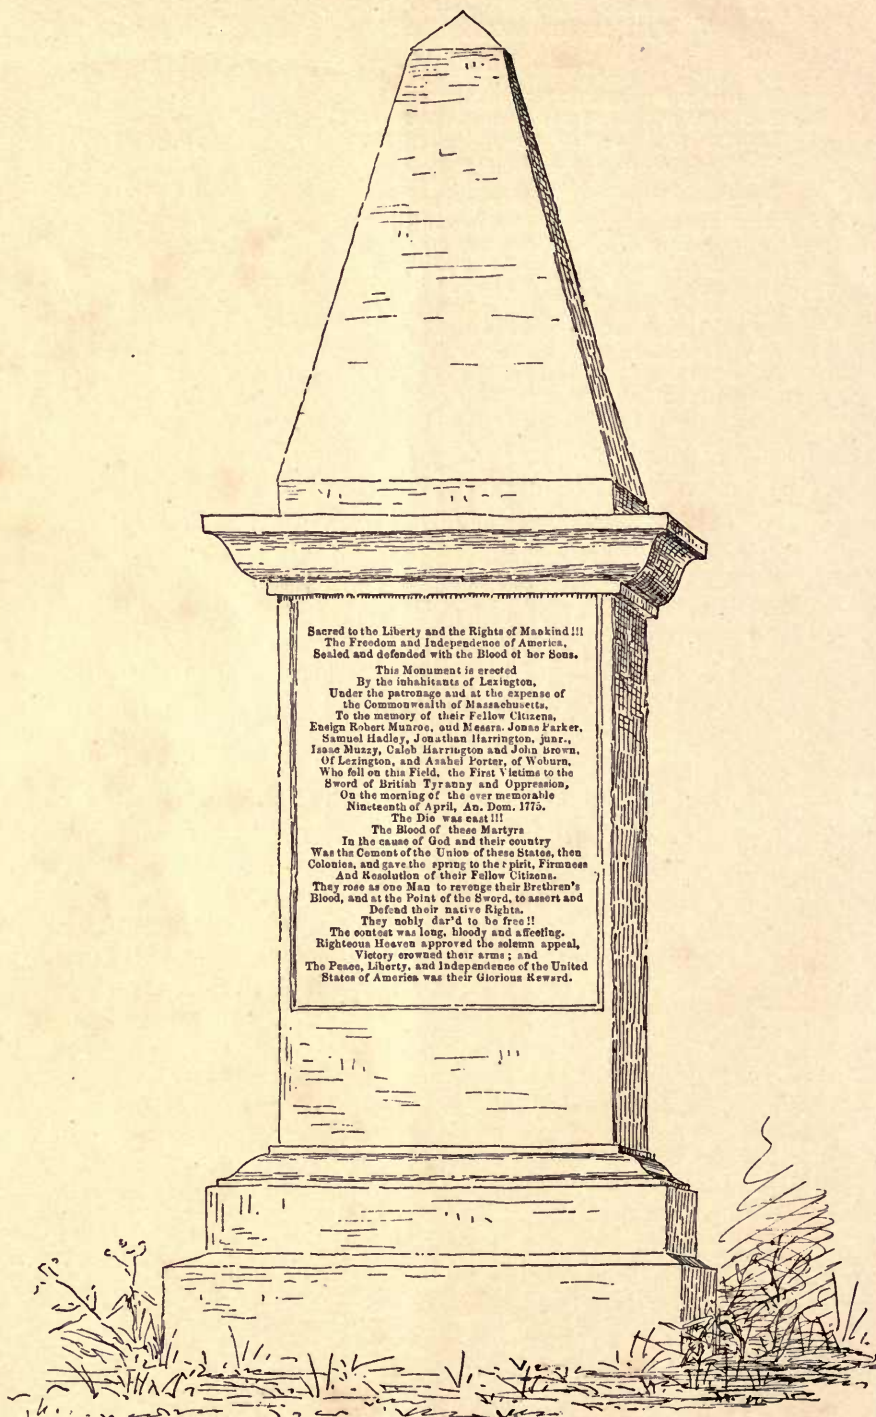 Sacred to the Liberty and the Rights of Mankind!!!
The Freedom and Independence of America,
Sealed and defended with the Blood of her Sons.
This Monument is erected
By the inhabitants of Lexington,
Under the patronage and at the expense of
the Commonwealth of Massachusetts,
To the memory of their Fellow Citizens,
Ensign Robert Munroe, and Messrs. Jonas Parker,
Samuel Hadley, Jonathan Harrington, junr.,
Isaac Muzzy, Caleb Harrington and John Brown,
Of Lexington, and Asahel Porter, of Woburn,
Who fell on this Field, the First Victims to the
Sword of British Tyranny and Oppression,
On the morning of the ever memorable
Nineteenth of April, An. Dom. 1775.
The Die was cast!!!
The Blood of these Martyrs
In the cause of God and their country
Was the Cement of the Union of these States, then
Colonies, and gave the spring to the spirit, Firmness
And Resolution of their Fellow Citizens.
They rose as one Man to revenge their Brethren's
Blood, and at the Point of the Sword, to assert and
Defend their native Rights.
They nobly dar'd to be free!!
The contest was long, bloody and affecting.
Righteous Heaven approved the solemn appeal,
Victory crowned their arms; and
The Peace, Liberty, and Independence of the United
States of America was their Glorious Reward.